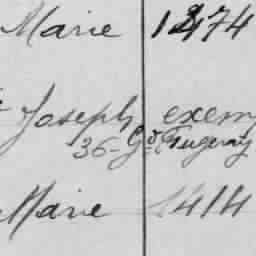 Marie 1474
Joseph exem
36 - Gd Eugeny
Marie 1414